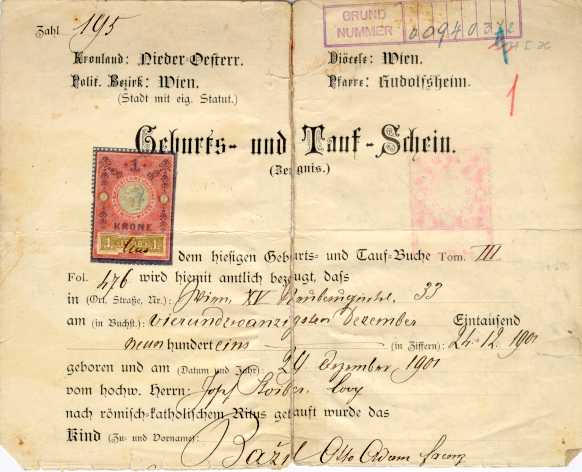 Zahl 195
GRUND
NUMMER 009403
Kronland: Nieder-Oesterr.
Diöcese: Wien.
Polit. Bezirk: Wien.
Pfarre: Rudolfsheim.
(Stadt mit eig. Statut.)
1
Geburts- und Tauf-Schein.
(Zeugnis.)
1
KRONE
1 1
Aus dem hiesigen Geburts- und Tauf-Buche Tom. III
Fol. 476 wird hiemit amtlich bezeugt, dass
in (Ort, Straße, Nr.): Wien XV 33
am (in Buchst.): vierundzwanzigsten Dezember Eintausend
neunhunderteins (in Ziffern): 24. 12. 1901
geboren und am (Datum und Jahr): 29 Dezember 1901
vom hochw. Herrn: Josef Coop
nach römisch-katholischem Ritus getauft wurde das
Kind (Zu- und Vorname): Bažil Otto Adam Georg